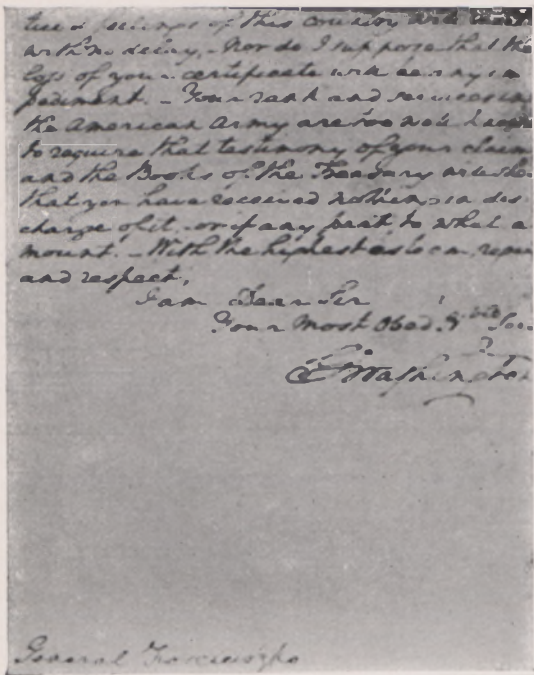 feelings of this country will
with no delay. Nor do I suppose that the
loss of your certificate will be any im
pediment. – Your rank and services in
the American Army are too well known
to require that testimony of your claim
and the Books of the Treasury will
that you have received nothing in dis
charge of it, or if any part to what a
mount. – With the highest esteem, regard
and respect,
I am Dear Sir
Your Most Obed.
G Washington
General Kosciuszko